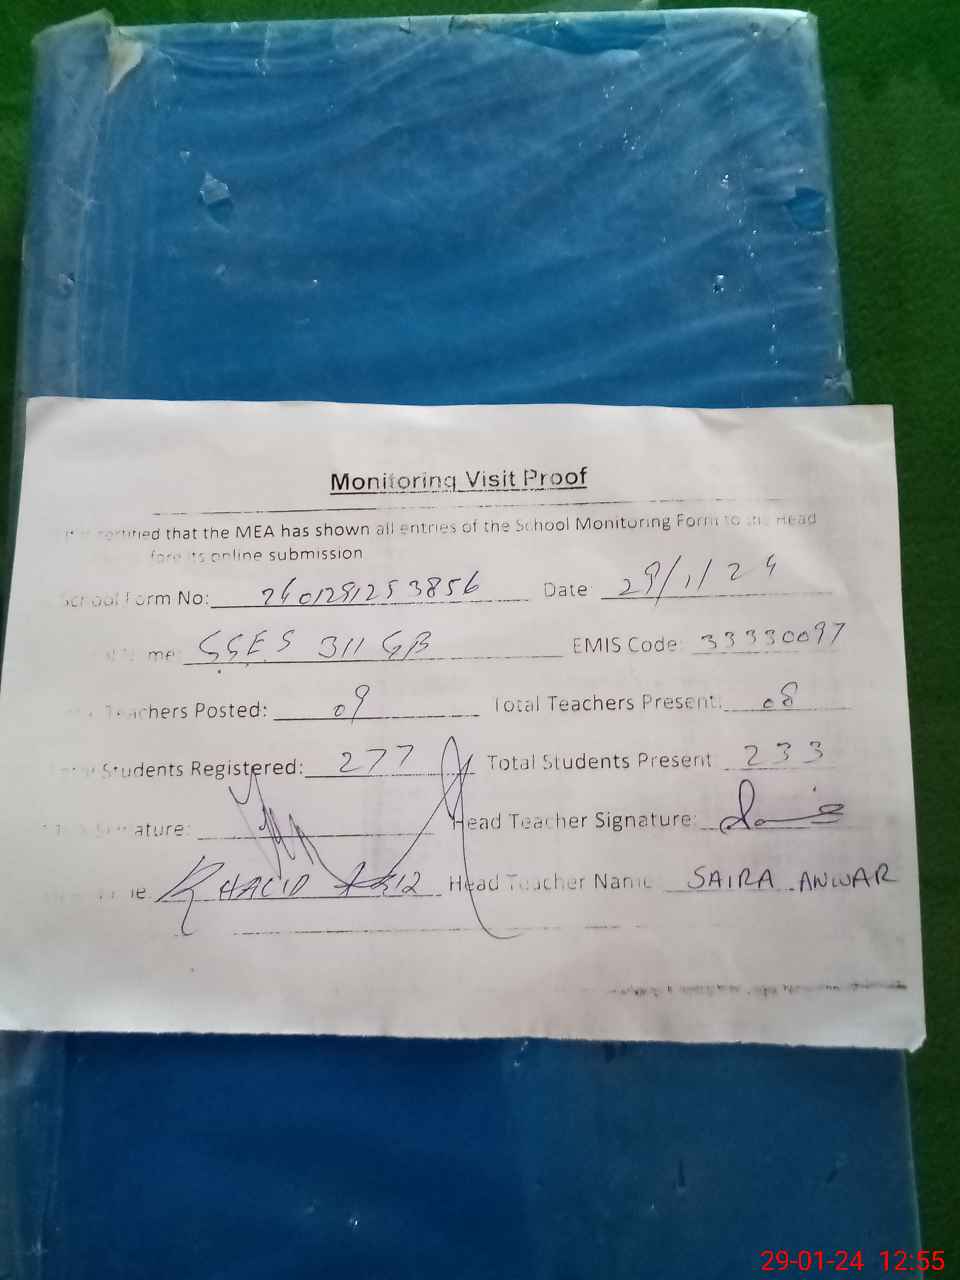 Monitoring Visit Proof
certified that the MEA has shown all entries of the School Monitoring Form to the Head
fore its online submission
School Form No: 240129125 3856 Date 29/1/24
me: GGES 311 GB EMIS Code: 33330097
Teachers Posted: 09 Total Teachers Present: 08
Students Registered: 277 Total Students Present 233
ature: Head Teacher Signature:
KHALID Head Teacher Name SAIRA ANWAR
29-01-24 12:55